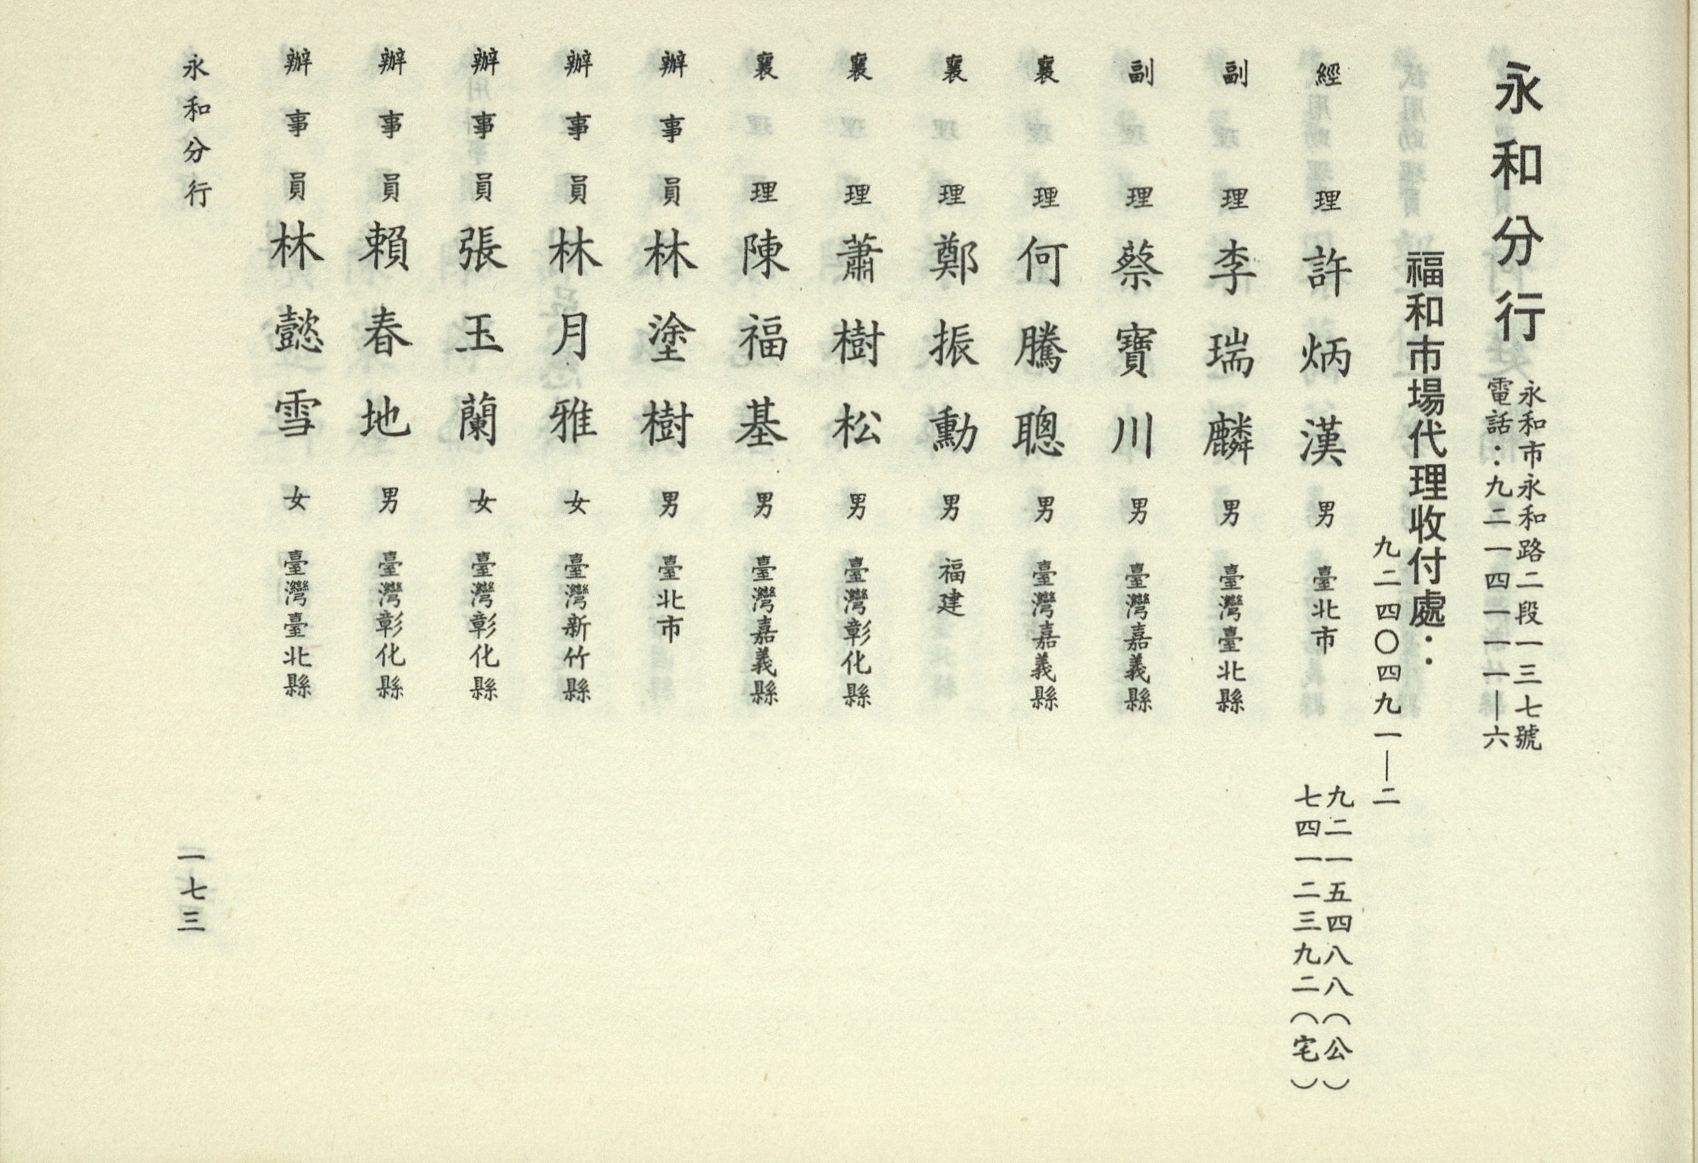 永和分行
永和市永和路二段一三七號
電話：九二一四一一一—六
福和市場代理收付處：
九二四〇四九一—二
經理 許炳漢 男 臺北市 九二一五四八八（公）
七四一二三九二（宅）
副理 李瑞麟 男 臺灣臺北縣
副理 蔡寶川 男 臺灣嘉義縣
襄理 何騰聰 男 臺灣嘉義縣
襄理 鄭振勳 男 福建
襄理 蕭樹松 男 臺灣彰化縣
襄理 陳福基 男 臺灣嘉義縣
辦事員 林塗樹 男 臺北市
辦事員 林月雅 女 臺灣新竹縣
辦事員 張玉蘭 女 臺灣彰化縣
辦事員 賴春地 男 臺灣彰化縣
辦事員 林懿雪 女 臺灣臺北縣
永和分行
一七三